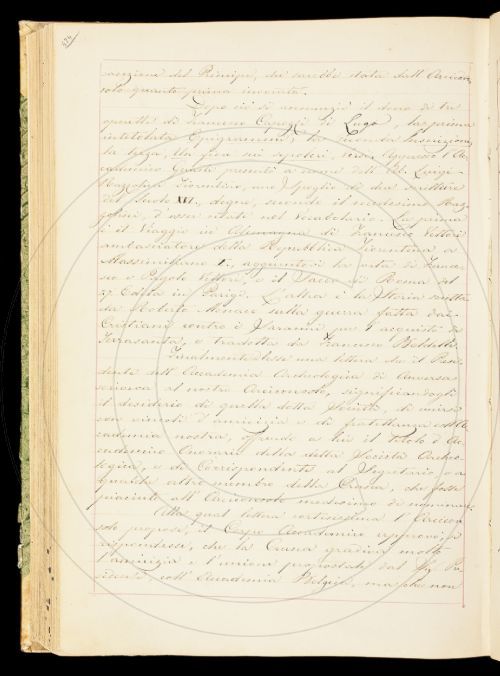 474
nenzione del Principe, che sarebbe stata dall' Arcicon-
solo quanto prima invocata.
Dopo ciò si annunziò il dono di tre
operette di Francesco Capozzi di Lugo, la prima
intitolata Epigrammi, la seconda Inscrizioni,
la terza, Un fiore sui sepolcri,
cademico Guasti presentò a nome dell' Ab. Luigi
Razzolini Fiorentino, uno spoglio di due scritture
del Secolo XVI., degne, secondo il medesimo Raz-
zolini, d'esser citate nel Vocabolario. La prima
è il Viaggio in Alemagna di Francesco Vettori
ambasciatore della Repubblica Fiorentina a
Massimiliano I., aggiuntavi la vita di Francesco
e Pagolo Vettori, e il Sacco di Roma del
27. Edita in Parigi. L'altra è la Storia scritta
da Roberto Monaco sulla guerra fatta dai
Cristiani contro i Saracini per l'acquisto di
Terrasanta, e tradotta da Francesco Baldelli.
Finalmente lesse una lettera che il Presi-
dente dell' Accademia Archeologica di Anversa
scriveva al nostro Arciconsolo, significandogli
il desiderio di quella dotta Società, di unirsi
con vincoli d'amicizia e di fratellanza all' Ac-
cademia nostra, offrendo a lui il titolo d'Ac-
cademico Onorario della detta Società Archeo-
logica, e di Corrispondente al Segretario, e a
qualche altro membro della Crusca, che fosse
piaciuto all' Arciconsolo medesimo di nominare.
Alla qual lettera cortesissima l'Arcicon-
solo propose, e il Corpo Accademico approvò, si
rispondesse, che la Crusca gradiva molto
l'amicizia e l'unione propostale dal Sig. Pre-
sidente coll' Accademia Belgica, ma che non